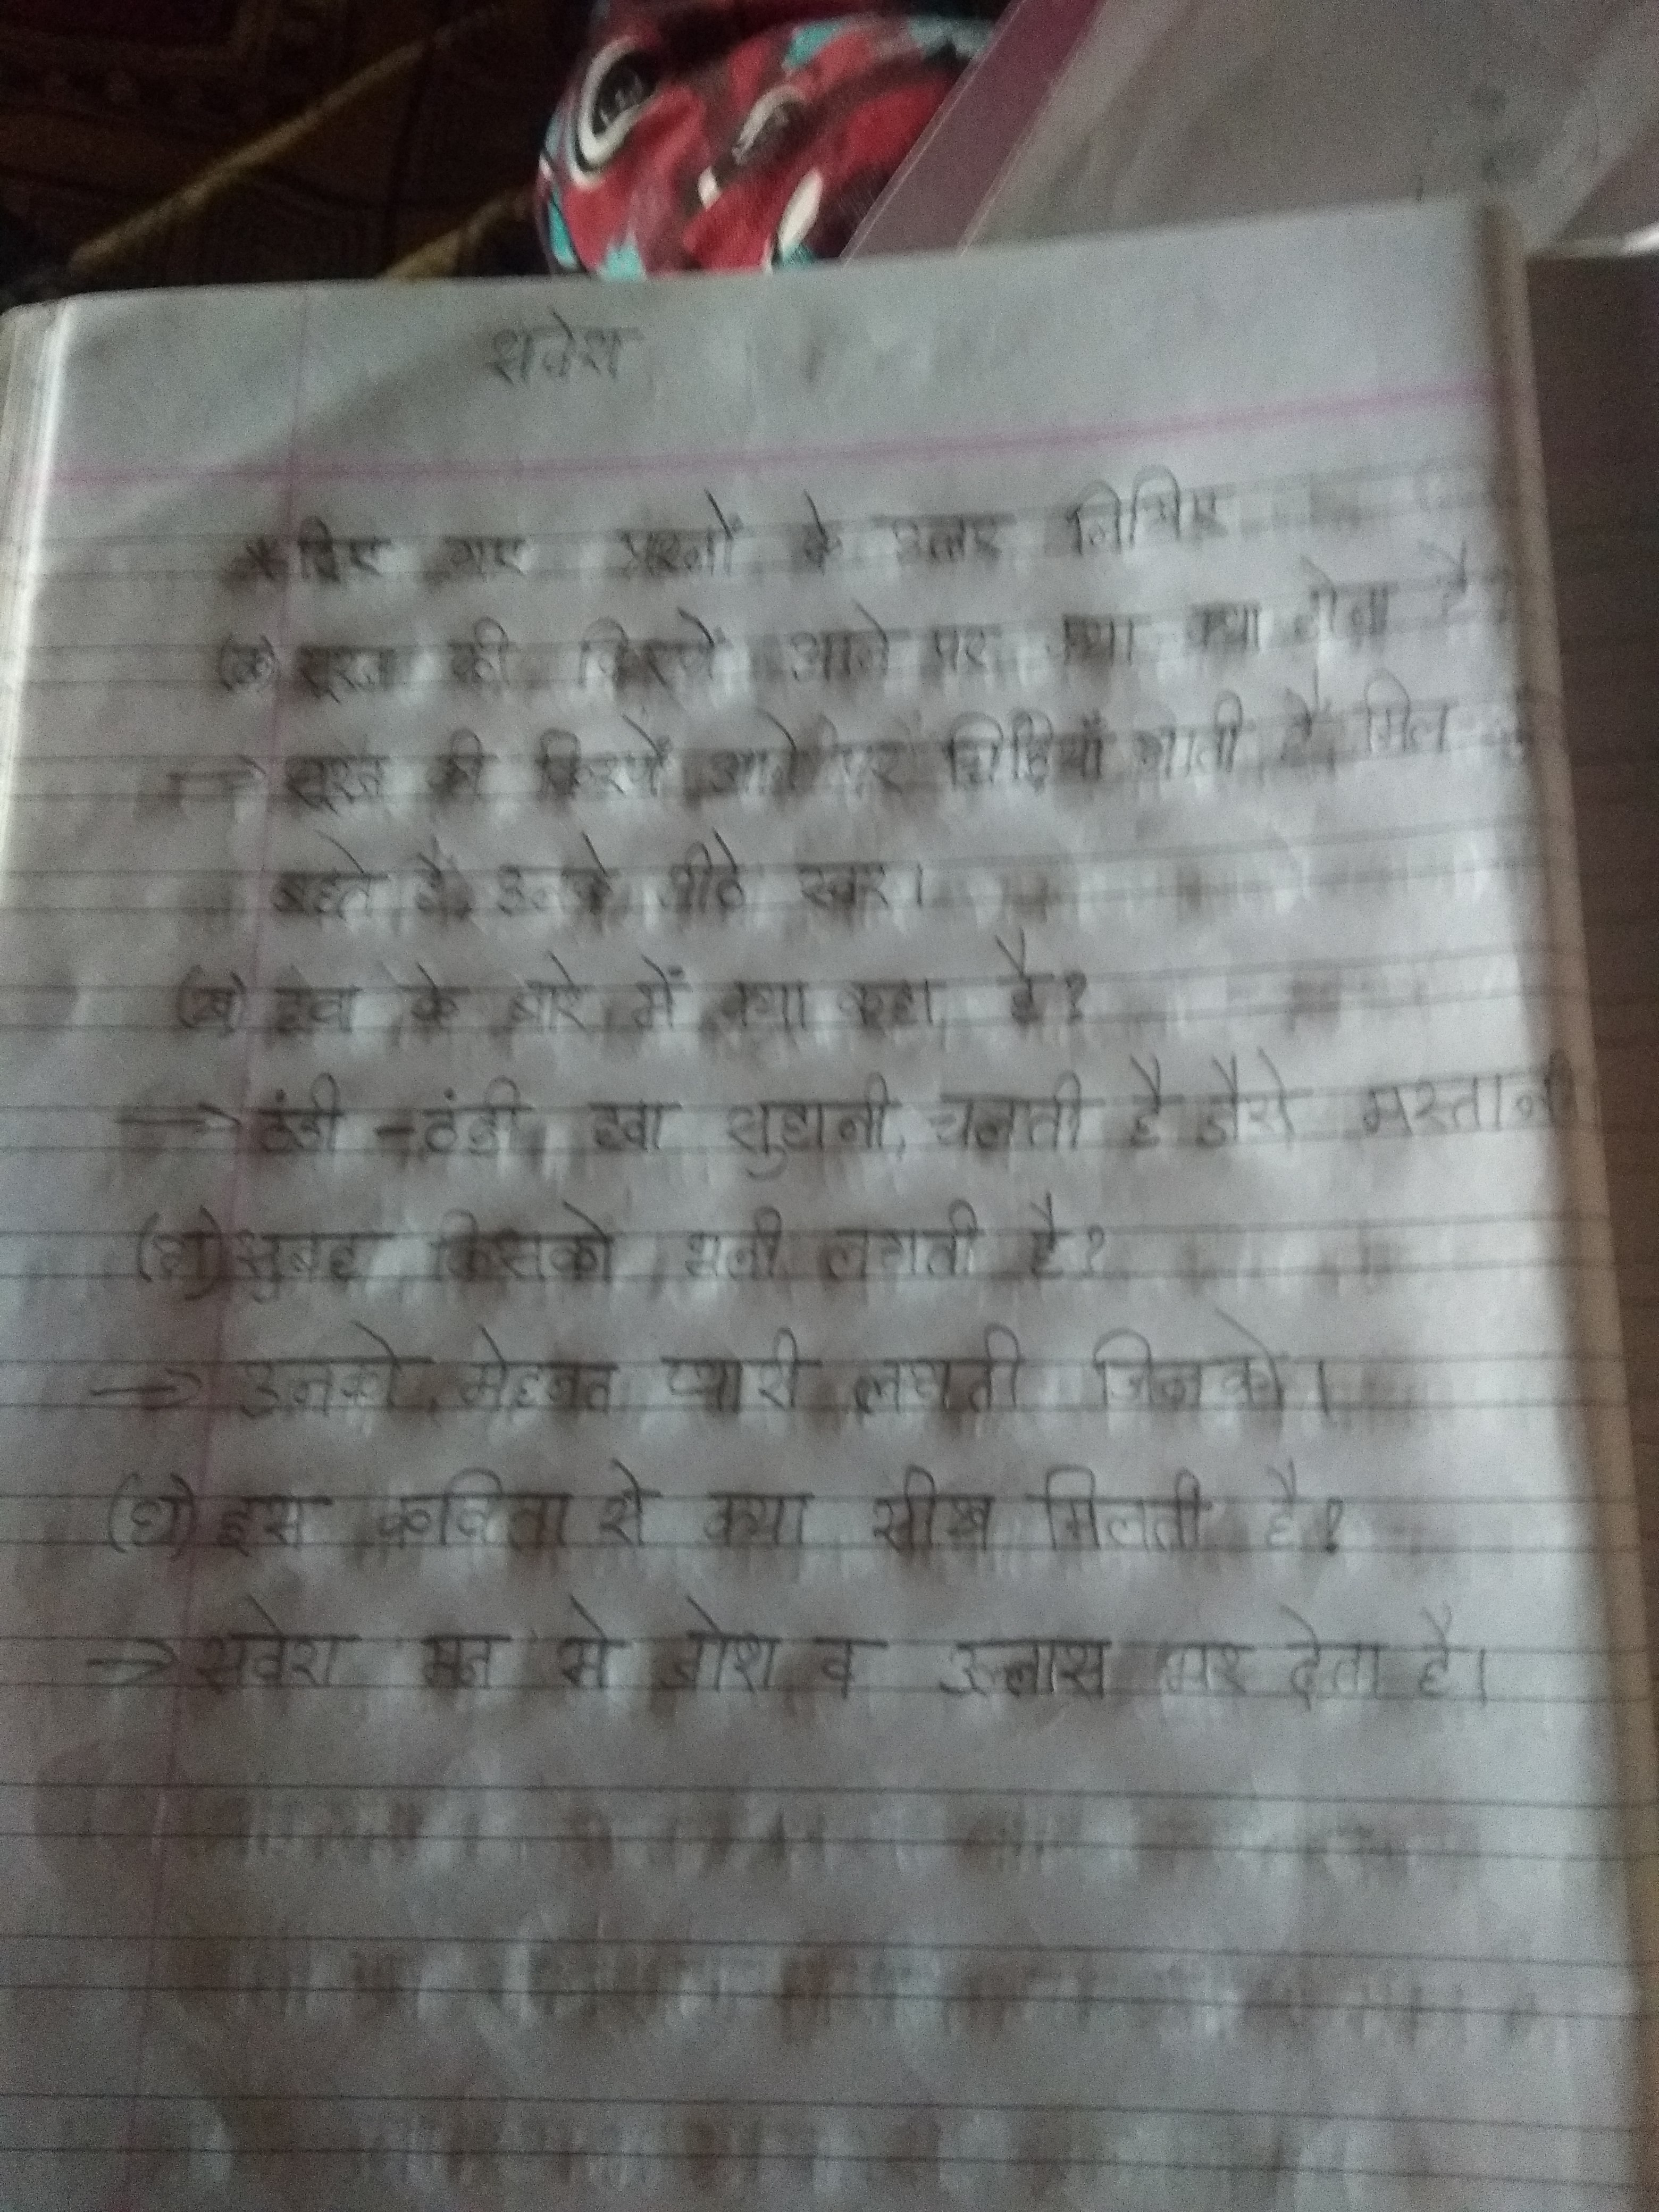 सवेरा
* दिए गए प्रश्नों के उत्तर लिखिए
(क) सूरज की किरणें आने पर क्या क्या होता है
→ सूरज की किरणें आते पर चिड़ियाँ गाती हैं, मिल
बहते हैं, उनके मीठे स्वर।
(ख) हवा के बारे में क्या कहा, है?
→ ठंडी - ठंडी हवा सुहानी, चलती है जैसे मस्तानी
(ग) सुबह किसको भली लगती है?
→ उनको, मेहनत प्यारी लगती जिनको।
(घ) इस कविता से क्या सीख मिलती है?
→ सवेरा मन मे जोश व उल्लास भर देता है।